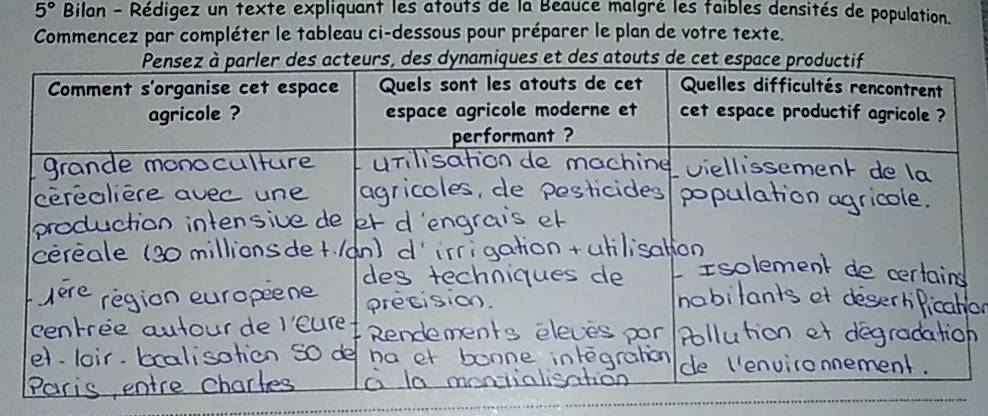 5° Bilan - Rédigez un texte expliquant les atouts de la Beauce malgré les faibles densités de population.
Commencez par compléter le tableau ci-dessous pour préparer le plan de votre texte.
Pensez à parler des acteurs, des dynamiques et des atouts de cet espace productif
Comment s'organise cet espace agricole ?
- grande monoculture
céréalière avec une
production intensive de
céréale (30 millions de t./an)
- 1ère région europeene
centrée autour de l'eure-
et-loir. localisation SO de
Paris, entre Chartes
Quels sont les atouts de cet espace agricole moderne et performant ?
- utilisation de machine
agricoles, de pesticides
et d'engrais et
d'irrigation + utilisation
des techniques de
précision.
- Rendements élevés par
ha et bonne intégration
à la mondialisation
Quelles difficultés rencontrent cet espace productif agricole ?
- viellissement de la
population agricole.
- Isolement de certains
habitants et désertification
- Pollution et dégradation
de l'environnement.